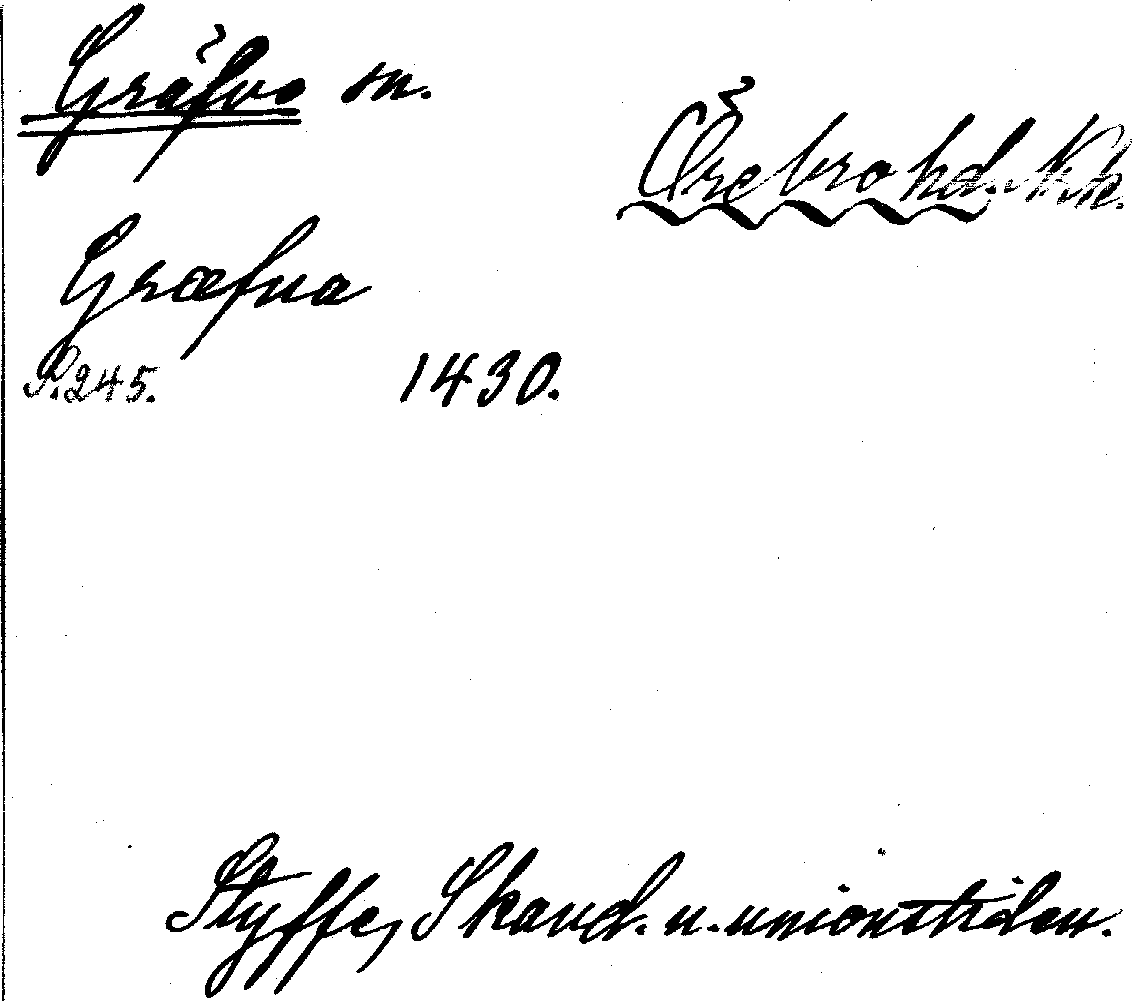 Gräfve sn.
Örebro hd. Nk.
Græfna
S. 245. 1430.
Styffe, Skand. u. unionstiden.